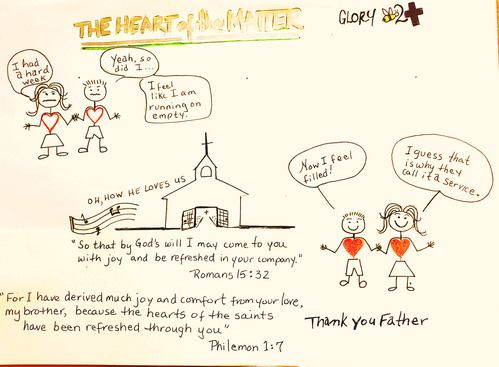 THE HEART of the MATTER
GLORY 2
I had
a hard
week
Yeah, so
did I...
I feel
like I am
running on
empty.
OH, HOW HE LOVES US
Now I feel
filled!
I guess that
is why they
call it a service.
"So that by God's will I may come to you
with joy and be refreshed in your company."
Romans 15:32
"For I have derived much joy and comfort from your love,
my brother, because the hearts of the saints
have been refreshed through you"
Philemon 1:7
Thank you Father